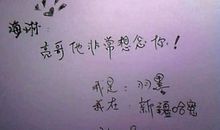 海琳:
亮哥他非常想念你!
我是:羽墨
我在:新疆哈密